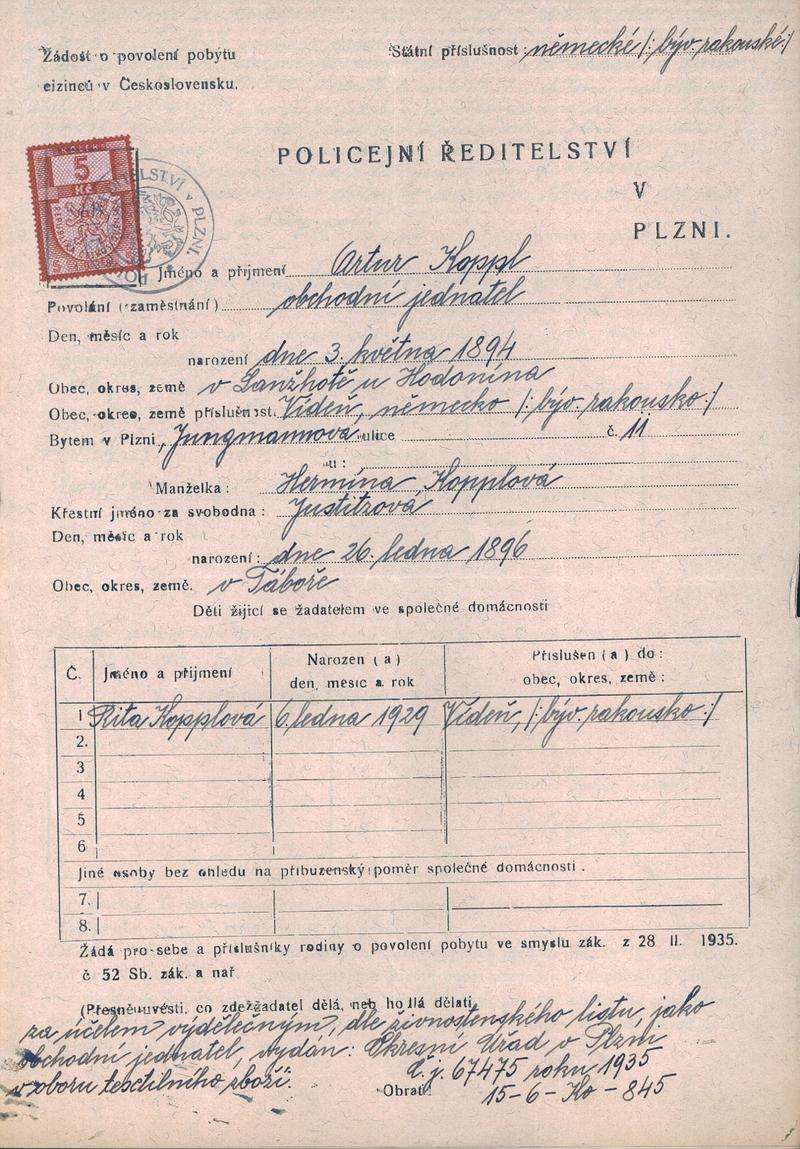 Žádost o povolení pobytu
cizinců v Československu.
Státní příslušnost: německé /: býv. rakouské :/
5
Kč
POLICEJNÍ ŘEDITELSTVÍ
V
PLZNI.
Jméno a příjmení Artur Koppl
Povolání (zaměstnání) obchodní jednatel
Den, měsíc a rok
narození dne 3. května 1894
Obec, okres, země v Lanžhotě u Hodonína
Obec, okres, země příslušnost. Vídeň, německo /: býv. rakousko :/
Bytem v Plzni, Jungmannova ulice č. 11
u :
Manželka : Hermína Kopplová
Křestní jméno za svobodna : Justitzová
Den, měsíc a rok
narození : dne 26. ledna 1896
Obec, okres, země. v Táboře
Děti žijící se žadatelem ve společné domácnosti
Č. Jméno a přijmení Narozen ( a ) den, měsíc a rok Příslušen ( a ) do : obec, okres, země :
1 Rita Kopplová 6. ledna 1929 Vídeň, /: býv. rakousko :/
2.
3
4
5
6
Jiné osoby bez ohledu na příbuzenský poměr společné domácnosti .
7.
8.
Žádá pro sebe a příslušníky rodiny o povolení pobytu ve smyslu zák. z 28 II. 1935.
č 52 Sb. zák. a nař
(Přesně uvésti, co zde žadatel dělá, neb hodlá dělati,
za účelem výdělečným, dle živnostenského listu, jako
obchodní jednatel, vydán: Okresní Úřad v Plzni
v oboru textilního zboží. Č.j. 67475 roku 1935
Obrať! 15-6-Ko-845